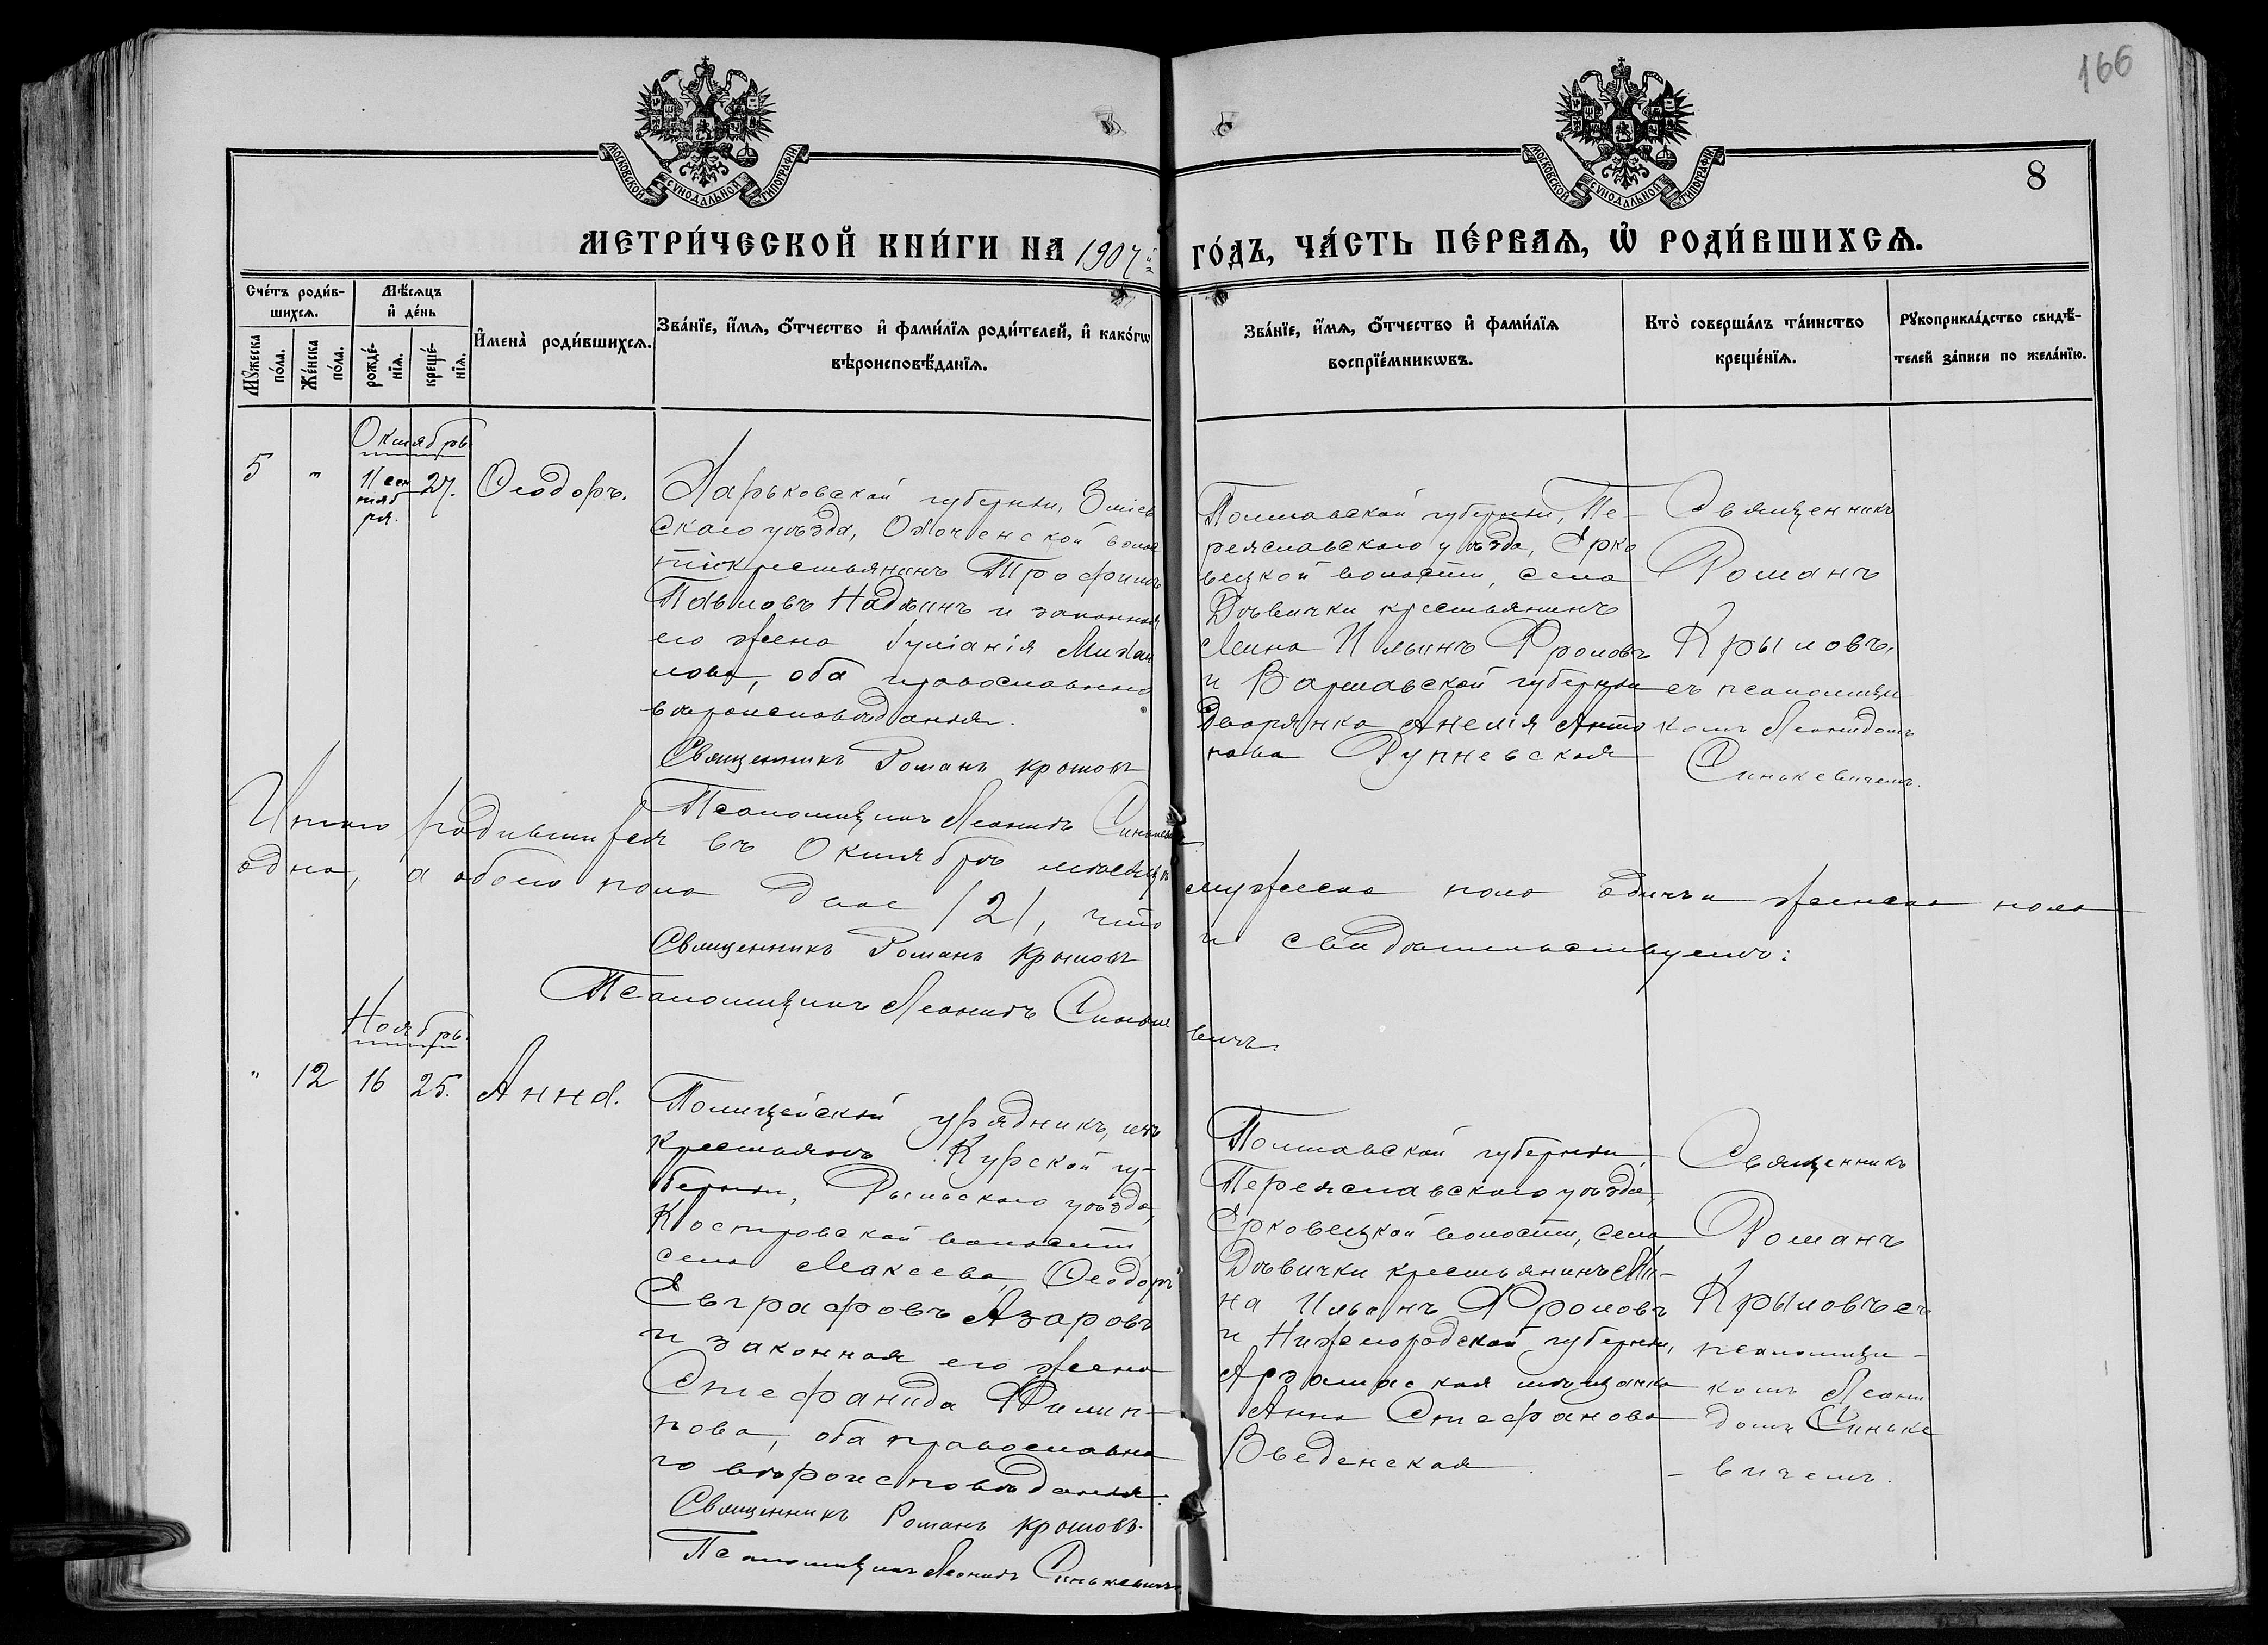 166
МОСКОВСКОЙ СѴНОДАЛЬНОЙ ТИПОГРАФІИ
МОСКОВСКОЙ СѴНОДАЛЬНОЙ ТИПОГРАФІИ
8
МЕТРИ́ЧЕСКОЙ КНИ́ГИ НА 1907й ГО́ДЪ, ЧА́СТЬ ПЕ́РВАЯ, Ѡ҆ РОДИ́ВШИХСѦ.
Сче́тъ роди́в-
шихсѧ.
Мѣ́сѧцъ
и҆ де́нь
Мꙋ́жеска
по́ла.
Же́нска
по́ла.
рожде́-
нїѧ.
креще́-
нїѧ.
И҆мена̀ роди́вшихсѧ.
Зва́нїе, и҆́мѧ, ѻ҆́тчество и҆ фами́лїѧ роди́телей, и҆ како́гѡ
вѣроисповѣ́данїѧ.
Зва́нїе, и҆́мѧ, ѻ҆́тчество и҆ фами́лїѧ
воспрїе́мникѡвъ.
Кто̀ соверша́лъ та́инство
креще́нїѧ.
Рꙋкоприкла́дство свидѣ́-
телей за́писи по жела́нїю.
Октябрь.
5 " 11 сен
тяб
ря. 27. Ѳеодоръ.
Харьковской губерніи, Зміев
скаго уѣзда, Охоченской волос
ти крестьянинъ Трофимъ
Павловъ Надѣинъ и законная
его жена Михаи
лова, оба православнаго
вѣроисповѣданія.
Священникъ Романъ Крыловъ
Псаломщикъ Леонидъ Синькевичъ
Полтавской губерніи, Пе-
реяславскаго уѣзда, Ерко
вецкой волости, села
Дѣвички крестьянинъ
Мина Ильинъ Фроловъ
и Варшавской губерніи
дворянка Анелія Анто
нова Рупневская
Священникъ
Романъ
Крыловъ,
съ псаломщи
комъ Леонидомъ
Синькевичемъ.
Итого родившихся въ Октябрѣ мѣсяцѣ мужеска пола одинъ и женска пола
одна, а обоего пола двое /2/, что и свидѣтельствуемъ:
Священникъ Романъ Крыловъ
Псаломщикъ Леонидъ Синькевичъ.
Ноябрь.
" 12 16 25. Анна.
Полицейскій урядникъ, изъ
крестьянъ Курской гу-
берніи, Рыльскаго уѣзда,
Костровской волости
села Макеева, Ѳеодоръ
Евграфовъ Азаровъ
и законная его жена
Стефанида Филип-
пова, оба православна
го вѣроисповѣданія.
Священникъ Романъ Крыловъ.
Псаломщикъ Леонидъ Синькевичъ
Полтавской губерніи,
Переяславскаго уѣзда,
Ерковецкой волости, села
Дѣвички крестьянинъ Ми-
на Ильинъ Фроловъ
и Нижегородской губерніи,
Арзамаская мѣщанка
Анна Стефанова
Введенская
Священникъ
Романъ
Крыловъ съ
псаломщи-
комъ Леони
домъ Синьке
- вичемъ.